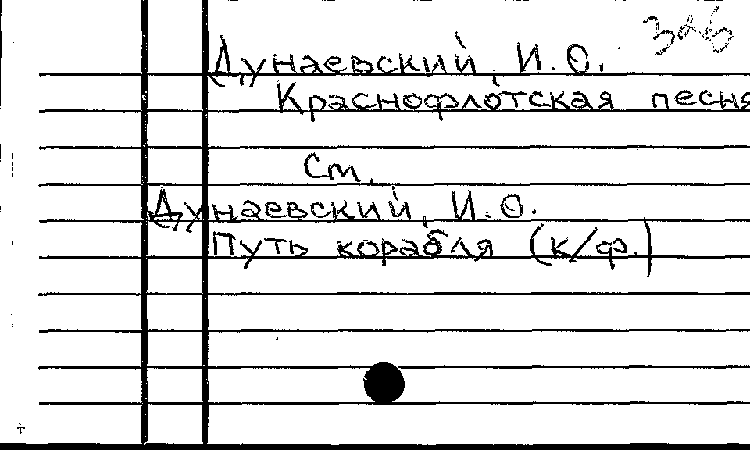 Дунаевский, И.О.
Краснофлотская песня
См.
Дунаевский, И.О.
Путь корабля (к/ф.)